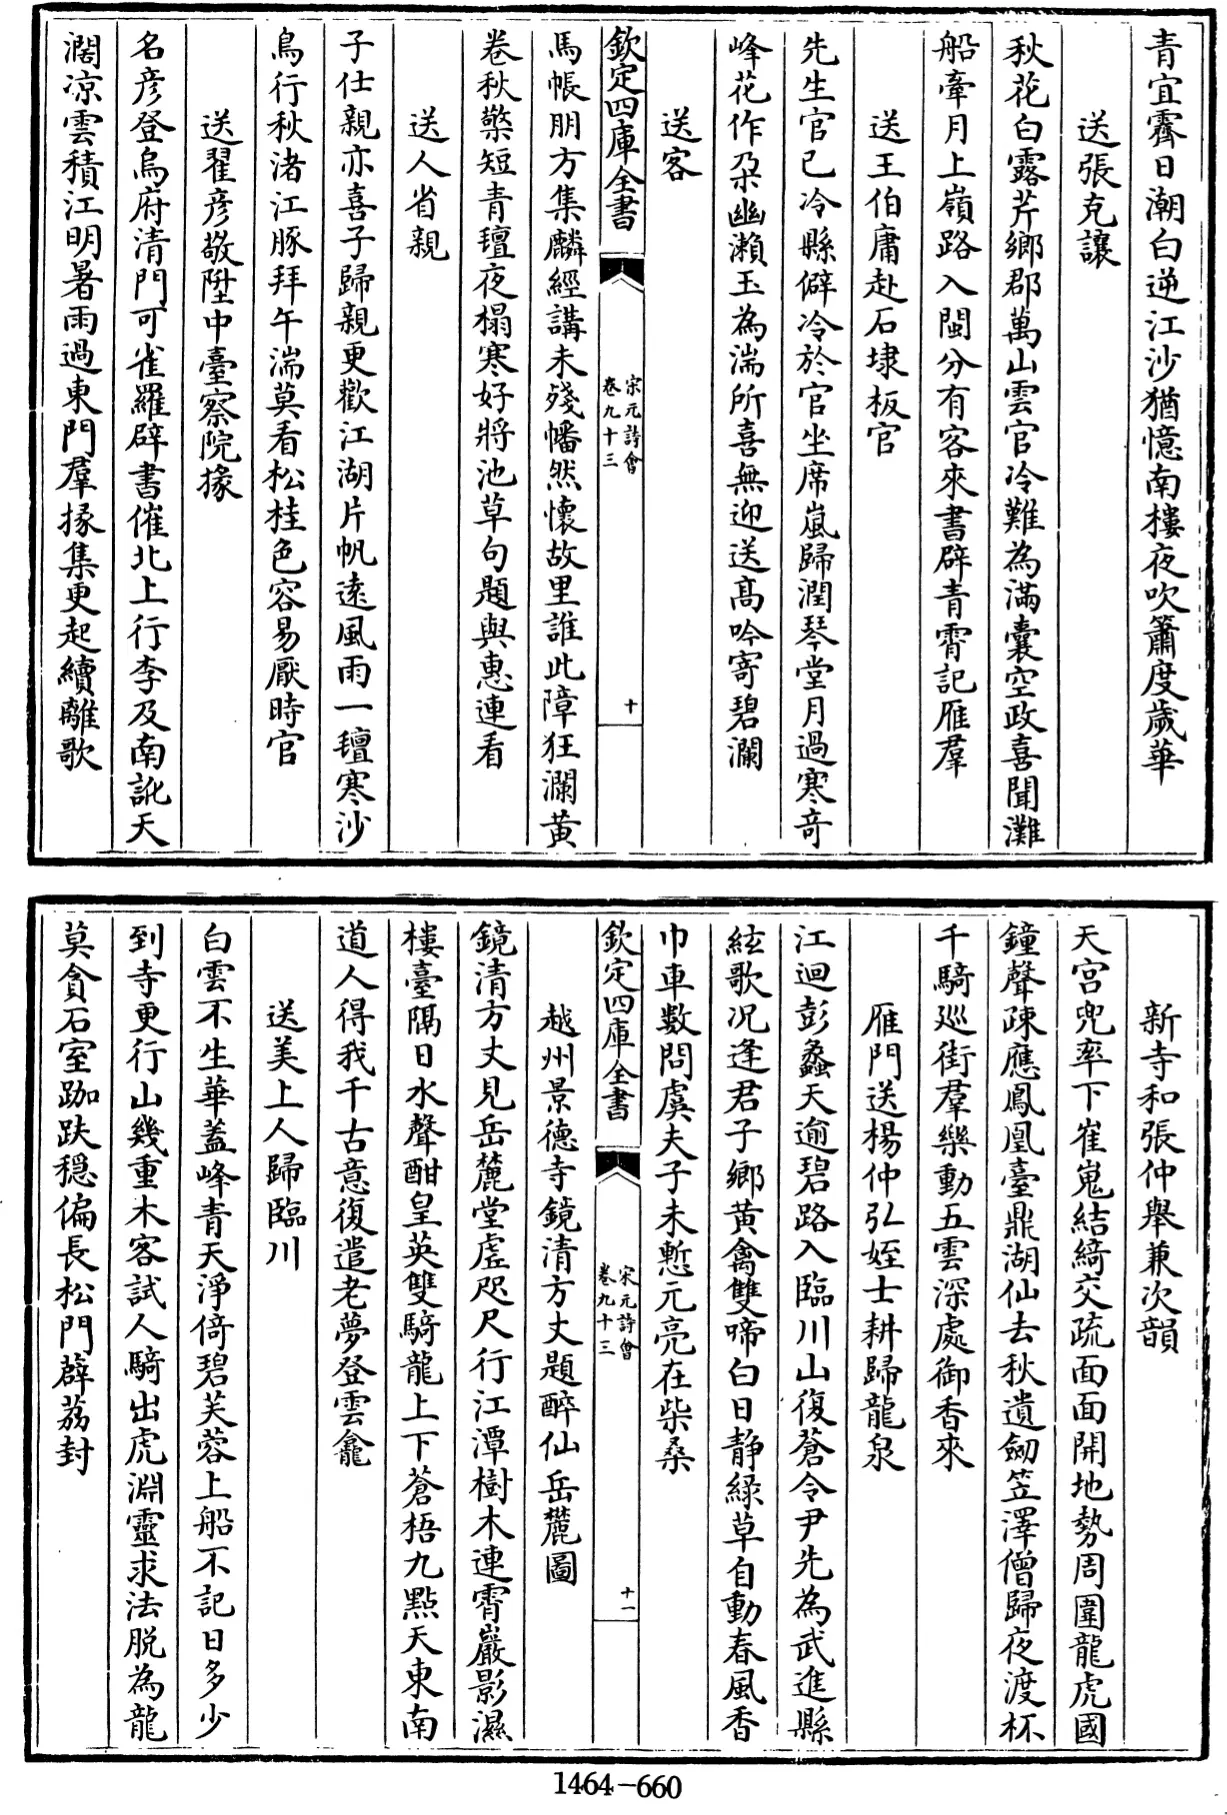 青宜霽日潮白逆江沙猶憶南樓夜吹簫度歲華
送張克讓
秋花白露芹鄉郡萬山雲官冷難為滿囊空政喜聞灘
船牽月上嶺路入閩分有客來書辟青霄記雁羣
送王伯庸赴石埭板官
先生官已冷縣僻冷於官坐席嵐歸潤琴堂月過寒奇
峰花作朶幽瀨玉為湍所喜無迎送高吟寄碧瀾
送客
欽定四庫全書
宗元詩會
卷九十三
十
馬帳朋方集麟經講未殘幡然懷故里誰此障狂瀾黃
卷秋檠短青氊夜榻寒好將池草句題與惠連看
送人省親
子仕親亦喜子歸親更歡江湖片帆逺風雨一氊寒沙
鳥行秋渚江豚拜午湍莫看松桂色容易厭時官
送翟彦敬陞中臺察院掾
名彦登烏府清門可雀羅辟書催北上行李及南訛天
濶凉雲積江明暑雨過東門羣掾集更起續離歌
新寺和張仲舉兼次韻
天宫兜率下崔嵬結綺交疏面面開地勢周圍龍虎國
鐘聲疎應鳳凰臺鼎湖仙去秋遺劒笠澤僧歸夜渡杯
千騎巡街羣樂動五雲深處御香來
雁門送楊仲弘姪士耕歸龍泉
江迴彭蠡天逾碧路入臨川山復蒼令尹先為武進縣
絃歌况逢君子鄉黄禽雙啼白日静緑草自動春風香
巾車數問虞夫子未慙元亮在柴桑
欽定四庫全書
宋元詩會
卷九十三
十一
越州景德寺鏡清方丈題醉仙岳麓圖
鏡清方丈見岳麓堂虛咫尺行江潭樹木連霄巖影濕
樓臺隔日水聲酣皇英雙騎龍上下蒼梧九點天東南
道人得我千古意復遣老夢登雲龕
送美上人歸臨川
白雲不生華蓋峰青天淨倚碧芙蓉上船不記日多少
到寺更行山幾重木客試人騎出虎淵靈求法脱為龍
莫貪石室跏趺穩偏長松門薜荔封
1464-660